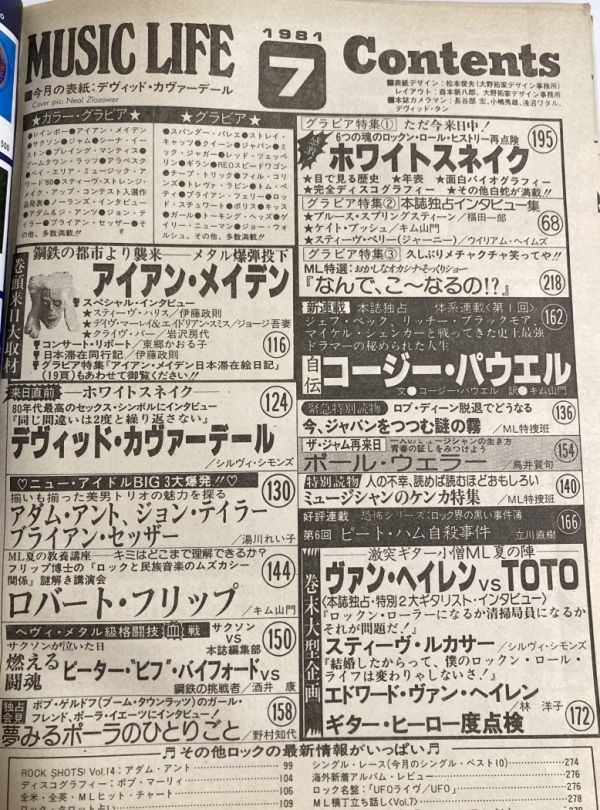 MUSIC LIFE
1981
7
Contents
■今月の表紙：デヴィッド・カヴァーデール
Cover pic: Neal Zlozower
■表紙デザイン：松本俊夫（大野拓家デザイン事務所）
レイアウト：森本新八郎、大野拓家デザイン事務所
■本誌カメラマン：長谷部 宏、小嶋秀雄、浅沼ワタル、
デヴィッド・タン
★カラー・グラビア★
●レインボー●アイアン・メイデン
●サクソン●ジャム●シーナ・イー
ストン●プレイング・マンティス●
ブームタウン・ラッツ●アラベスク
●ベイ・エリア・ミュージック・アワ
ード'80●スティーヴ・ストレンジ・
メイク・アップ・コンテスト入選作
品発表●ノーランズ・インタビュー
●アダム&ジ・アンツ●ジョン・テイ
ラー●ブライアン・セッザー●そ
の他、多数満載!!
★グラビア★
●スパンダー・バレエ●ストレイ・
キャッツ●クイーン●ジャパン●ミ
ック・ジャガー●レッド・ツェッペ
リン●ギラン●REOスピードワゴン
●チープ・トリック●フィル・コリ
ンズ●トレヴァ・ラビン●トム・ペ
ティ●ブライアン・フェリー●ロッ
ド・スチュワート●ポリス●キッス
●ガール●トーキング・ヘッズ●ゲ
イリー・ニューマン●ジョー・ウォ
ルシュ、その他、多数満載!!
グラビア特集① ただ今来日中!
6つの魂のロックン・ロール・ヒストリー再点検
195
ホワイトスネイク
★目で見る歴史 ★年表 ★面白バイオグラフィー
★完全ディスコグラフィー ★その他白蛇が満載!!
グラビア特集② 本誌独占インタビュー集
★ブルース・スプリングスティーン／福田一郎
★ケイト・ブッシュ／キム山門
★スティーヴ・ペリー（ジャーニー）／ウイリアム・ヘイムズ
68
グラビア特集③ 久しぶりメチャクチャ笑ってや!!
ML特選：おかしなオカシナ・そっくりショー
『なんで、こ〜なるの!?』
218
巻頭来日大取材
鋼鉄の都市より襲来――メタル爆弾投下
アイアン・メイデン
●スペシャル・インタビュー
★スティーヴ・ハリス／伊藤政則
★デイヴ・マーレイ&エイドリアン・スミス／ジョージ吾妻
★クライヴ・バー／岩沢房代
●コンサート・リポート／東郷かおる子
●日本滞在同行記／伊藤政則
●グラビア特集『アイアン・メイデン日本滞在絵日記』
（19頁）もあわせて御覧ください!!
116
新連載 本誌独占 体系連載〈第1回〉
ジェフ・ベック、リッチー・ブラックモア、
マイケル・シェンカーと戦ってきた史上最強
ドラマーの秘められた人生
162
自伝 コージー・パウエル
文●コージー・パウエル 訳●キム山門
来日直前――ホワイトスネイク
80年代最高のセックス・シンボルにインタビュー
『同じ間違いは2度と繰り返さない』
124
デヴィッド・カヴァーデール
／シルヴィ・シモンズ
緊急特別読物 ロブ・ディーン脱退でどうなる
今、ジャパンをつつむ謎の霧
／ML特捜班
136
ザ・ジャム再来日
一人のミュージシャンの生き方
青春の証しをみつけよう
ポール・ウェラー
鳥井賀句
154
♡ニュー・アイドルBIG3大爆発!!♡
揃いも揃った美男トリオの魅力を探る
130
アダム・アント、ジョン・テイラー
ブライアン・セッザー
／湯川れい子
特別読物 人の不幸、読めば読むほどおもしろい
ミュージシャンのケンカ特集
／ML特捜班
140
好評連載 恐怖シリーズ：ロック界の黒い事件簿
第6回 ピート・ハム自殺事件
立川直樹
166
ML夏の教養講座 キミはどこまで理解できるか?
フリップ博士の『ロックと民族音楽のムズカシー
関係』謎解き講演会
144
ロバート・フリップ
／キム山門
巻末大型企画
激突ギター小僧ML夏の陣
ヴァン・ヘイレンvsTOTO
〈本誌独占・特別2大ギタリスト・インタビュー〉
『ロックン・ローラーになるか清掃局員になるか
それが問題だ!』
スティーヴ・ルカサー
／シルヴィ・シモンズ
『結婚したからって、僕のロックン・ロール・
ライフは変わりゃしないさ!』
エドワード・ヴァン・ヘイレン
／林 洋子
ギター・ヒーロー度点検
172
ヘヴィ・メタル級格闘技 血戦 サクソンvs本誌編集部
サクソンが泣いた日
150
燃える闘魂 ピーター"ビフ"バイフォードvs
鋼鉄の挑戦者／酒井 康
独占会見 ボブ・ゲルドフ（ブーム・タウンラッツ）のガール・
フレンド、ポーラ・イエーツにインタビュー!
158
夢みるポーラのひとりごと
／野村知代
♬その他ロックの最新情報がいっぱい♬
ROCK SHOTS! Vol.14：アダム・アント 99
ディスコグラフィー：ボブ・マーリィ 104
全米・全英・MLヒット・チャート 106
ロック・タロット占い 109
シングル・レース（今月のシングル・ベスト10） 274
海外新着アルバム・レビュー 276
ロック名盤：「UFOライヴ/UFO」 276
ML横丁立ち話し〈Vol.7〉 278